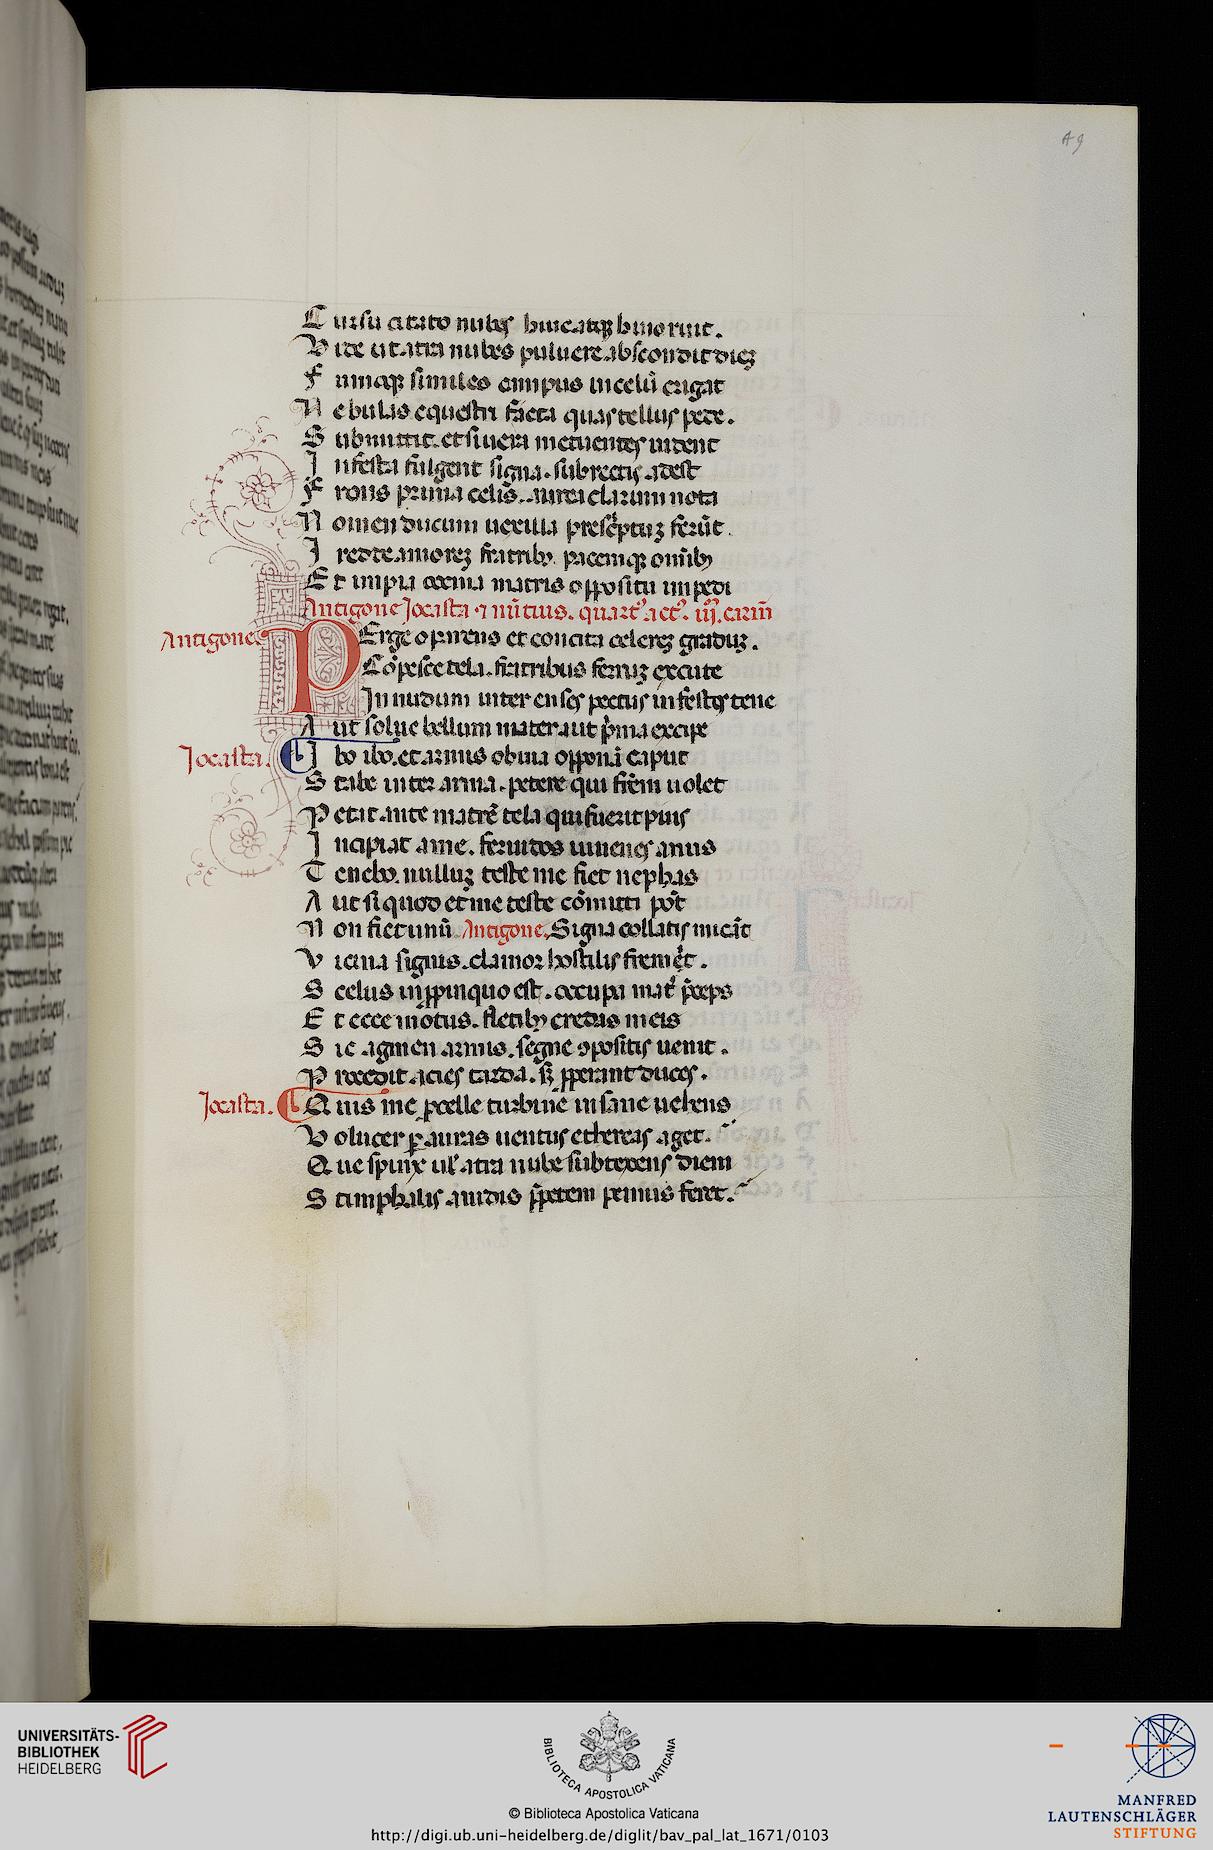 49
Cursu citato miles hinc atqȝ hinc ruit.
Vide ut atra nubes puluere abscondit dieȝ
Fumiqȝ similes campus in celū erigat
Nebulas equestri fracta quas tellus pede.
Submittit. et si uera metuentes uident
Infesta fulgent signa. subrectis adest
Frons prima telis. aurea clarum nota
Nomen ducum uexilla prescͥptuȝ ferūt.
I redde amoreȝ fratribꝫ. pacemqȝ omībꝫ
Et impia arma matris oppositu impedi
Antigone Jocasta ⁊ nūtius. quartꝰ actꝰ. iijͫ. carm̄
Antigone. PErge o parens et concita celereȝ graduȝ.
Cōpesce tela. fratribus ferruȝ excute
In nudum inter enses pectus infestos tene
Aut solue bellum mater aut pͥma excipe
Jocasta. Ibo ibo. et armis obuia opponā caput
Stabo inter arma. petere qui frēm uolet
Petat ante matrē tela qui fuerit pius
Incipiat a me. feruidos iuuenes anus
Tenebo. nulluȝ teste me fiet nephas
Aut si quod et me teste cōmitti pōt
Non fiet unū Antigone. Signa collatis micāt
Vicina signis. clamor hostilis fremit.
Scelus in ꝓpinquo est. occupa mat̄ p̄ces
Et ecce motus. fletibꝫ credas meis
Sic agmen armis. segne ꝯpositis uenit.
Procedit acies tarda. sȝ ꝓperant duces.
Jocasta. Quis me ꝓcelle turbine insane uehens
Volucer ꝑ auras uentus ethereas aget.
Que spinx ul̄ atra nube subtexens diem
Stimphalis auidis p̄petem pennis feret.
UNIVERSITÄTS-
BIBLIOTHEK
HEIDELBERG
BIBLIOTECA APOSTOLICA VATICANA
© Biblioteca Apostolica Vaticana
http://digi.ub.uni-heidelberg.de/diglit/bav_pal_lat_1671/0103
MANFRED
LAUTENSCHLÄGER
STIFTUNG